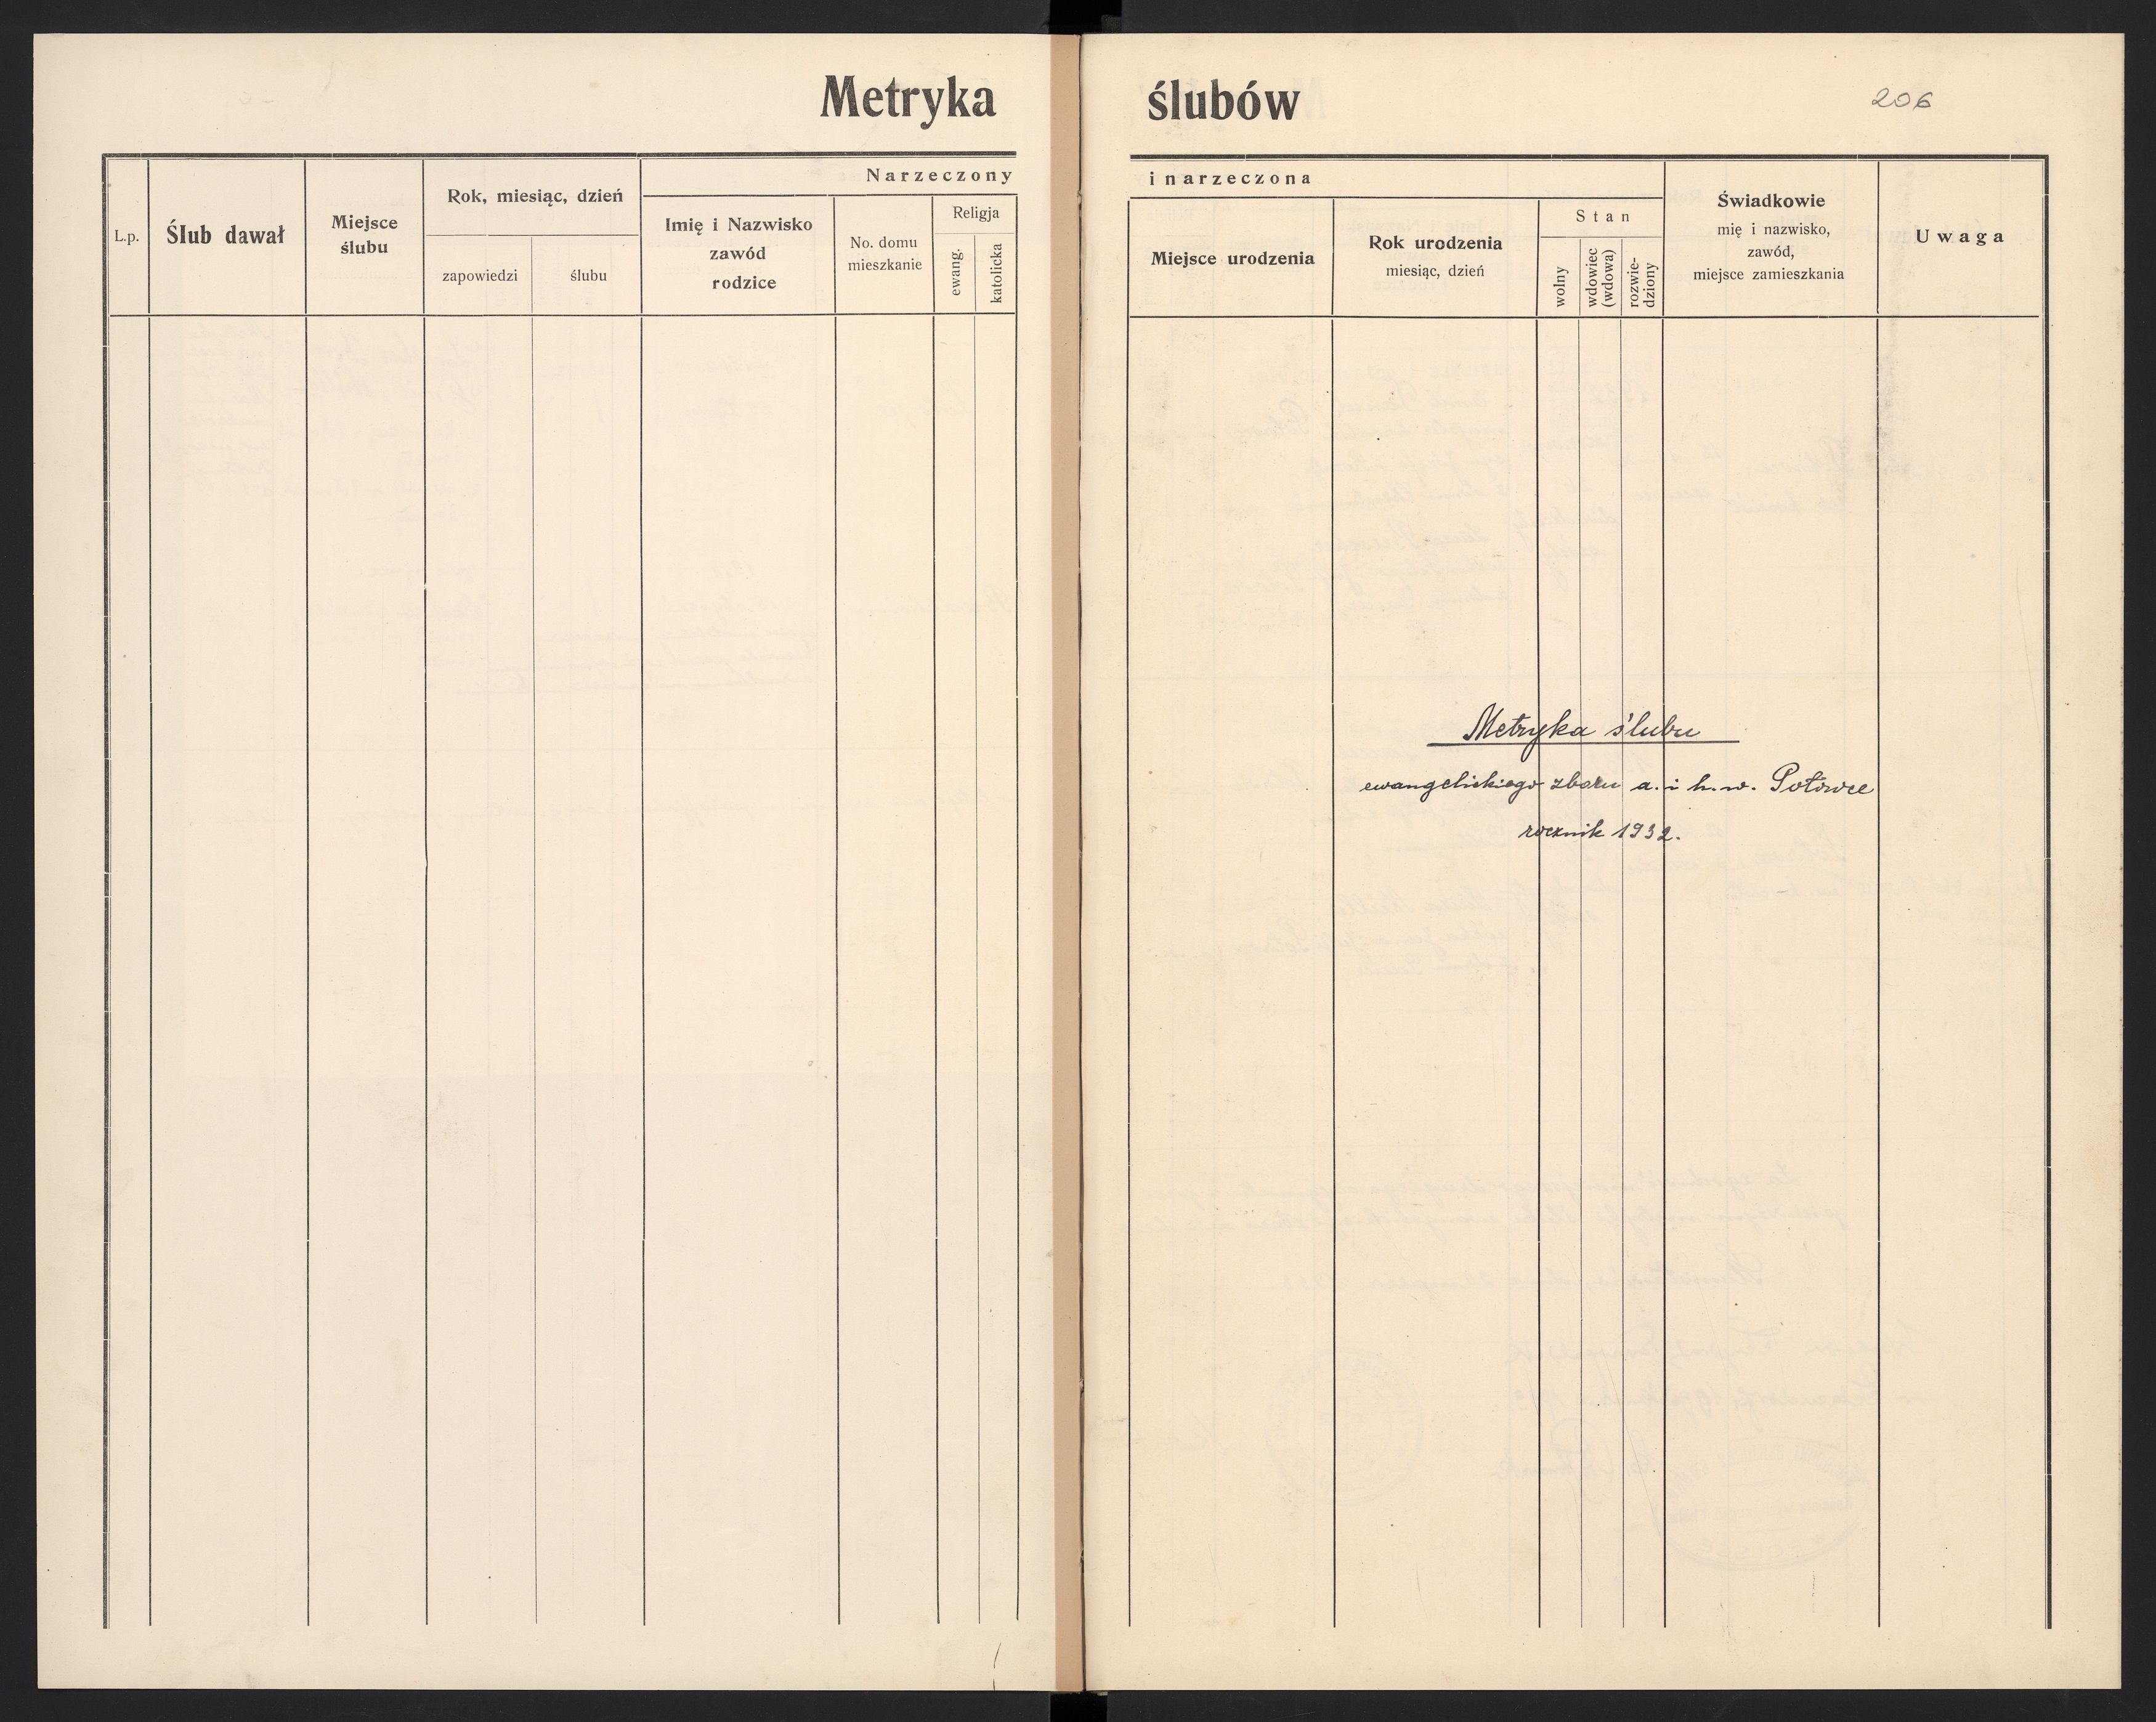 Metryka ślubów
206
Narzeczony i narzeczona
L.p.
Ślub dawał
Miejsce
ślubu
Rok, miesiąc, dzień
zapowiedzi
ślubu
Imię i Nazwisko
zawód
rodzice
No. domu
mieszkanie
Religja
ewang.
katolicka
Miejsce urodzenia
Rok urodzenia
miesiąc, dzień
Stan
wolny
wdowiec
(wdowa)
rozwie-
dziony
Świadkowie
mię i nazwisko,
zawód,
miejsce zamieszkania
Uwaga
Metryka ślubu
ewangelickiego zboru a. i h. w.
rocznik 1932.